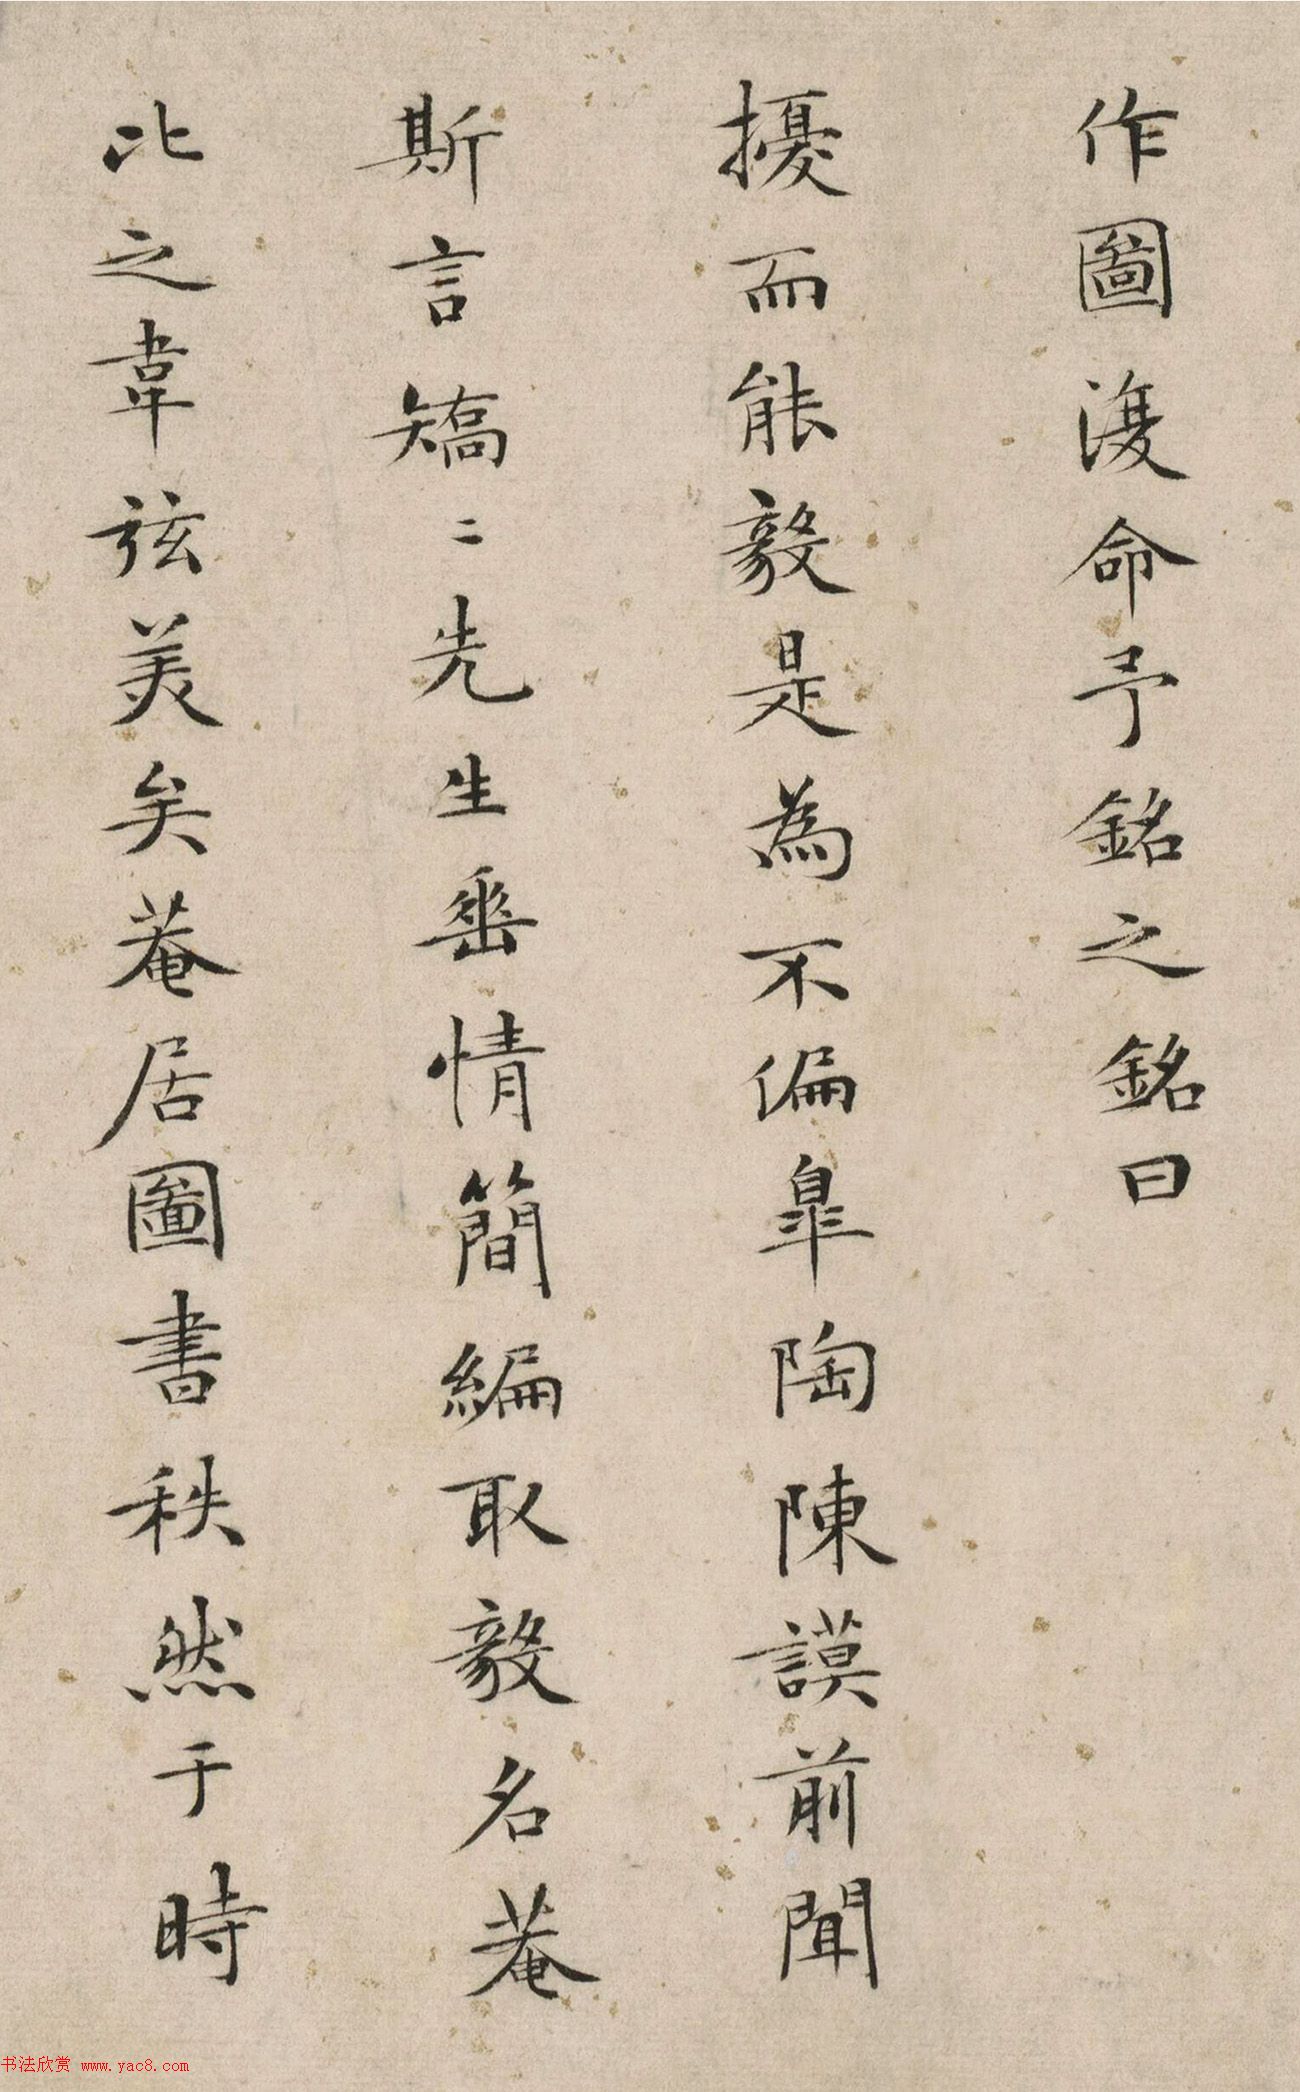 作圖復命予銘之銘曰
擾而能毅是為不偏臯陶陳謨前聞
斯言矯二先生垂情簡編取毅名菴
比之韋弦美矣菴居圖書秩然于時
书法欣赏 www.yac8.com